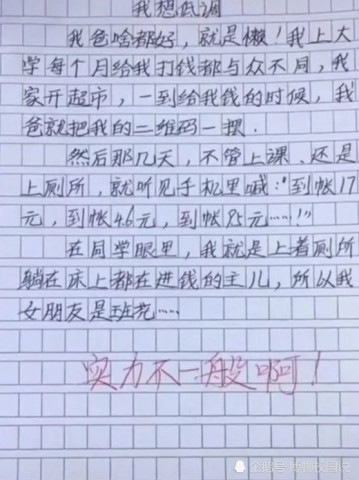 我想低调
我爸啥都好，就是懒！我上大
学每个月给我打钱都与众不同，我
家开超市，一到给我钱的时候，我
爸就把我的二维码一摆．
然后那几天，不管上课、还是
上厕所，就听见手机里喊："到帐17
元，到帐4.6元，到帐85元……！"
在同学眼里，我就是上着厕所
躺在床上都在进钱的主儿，所以我
女朋友是班花……
实力不一般啊！